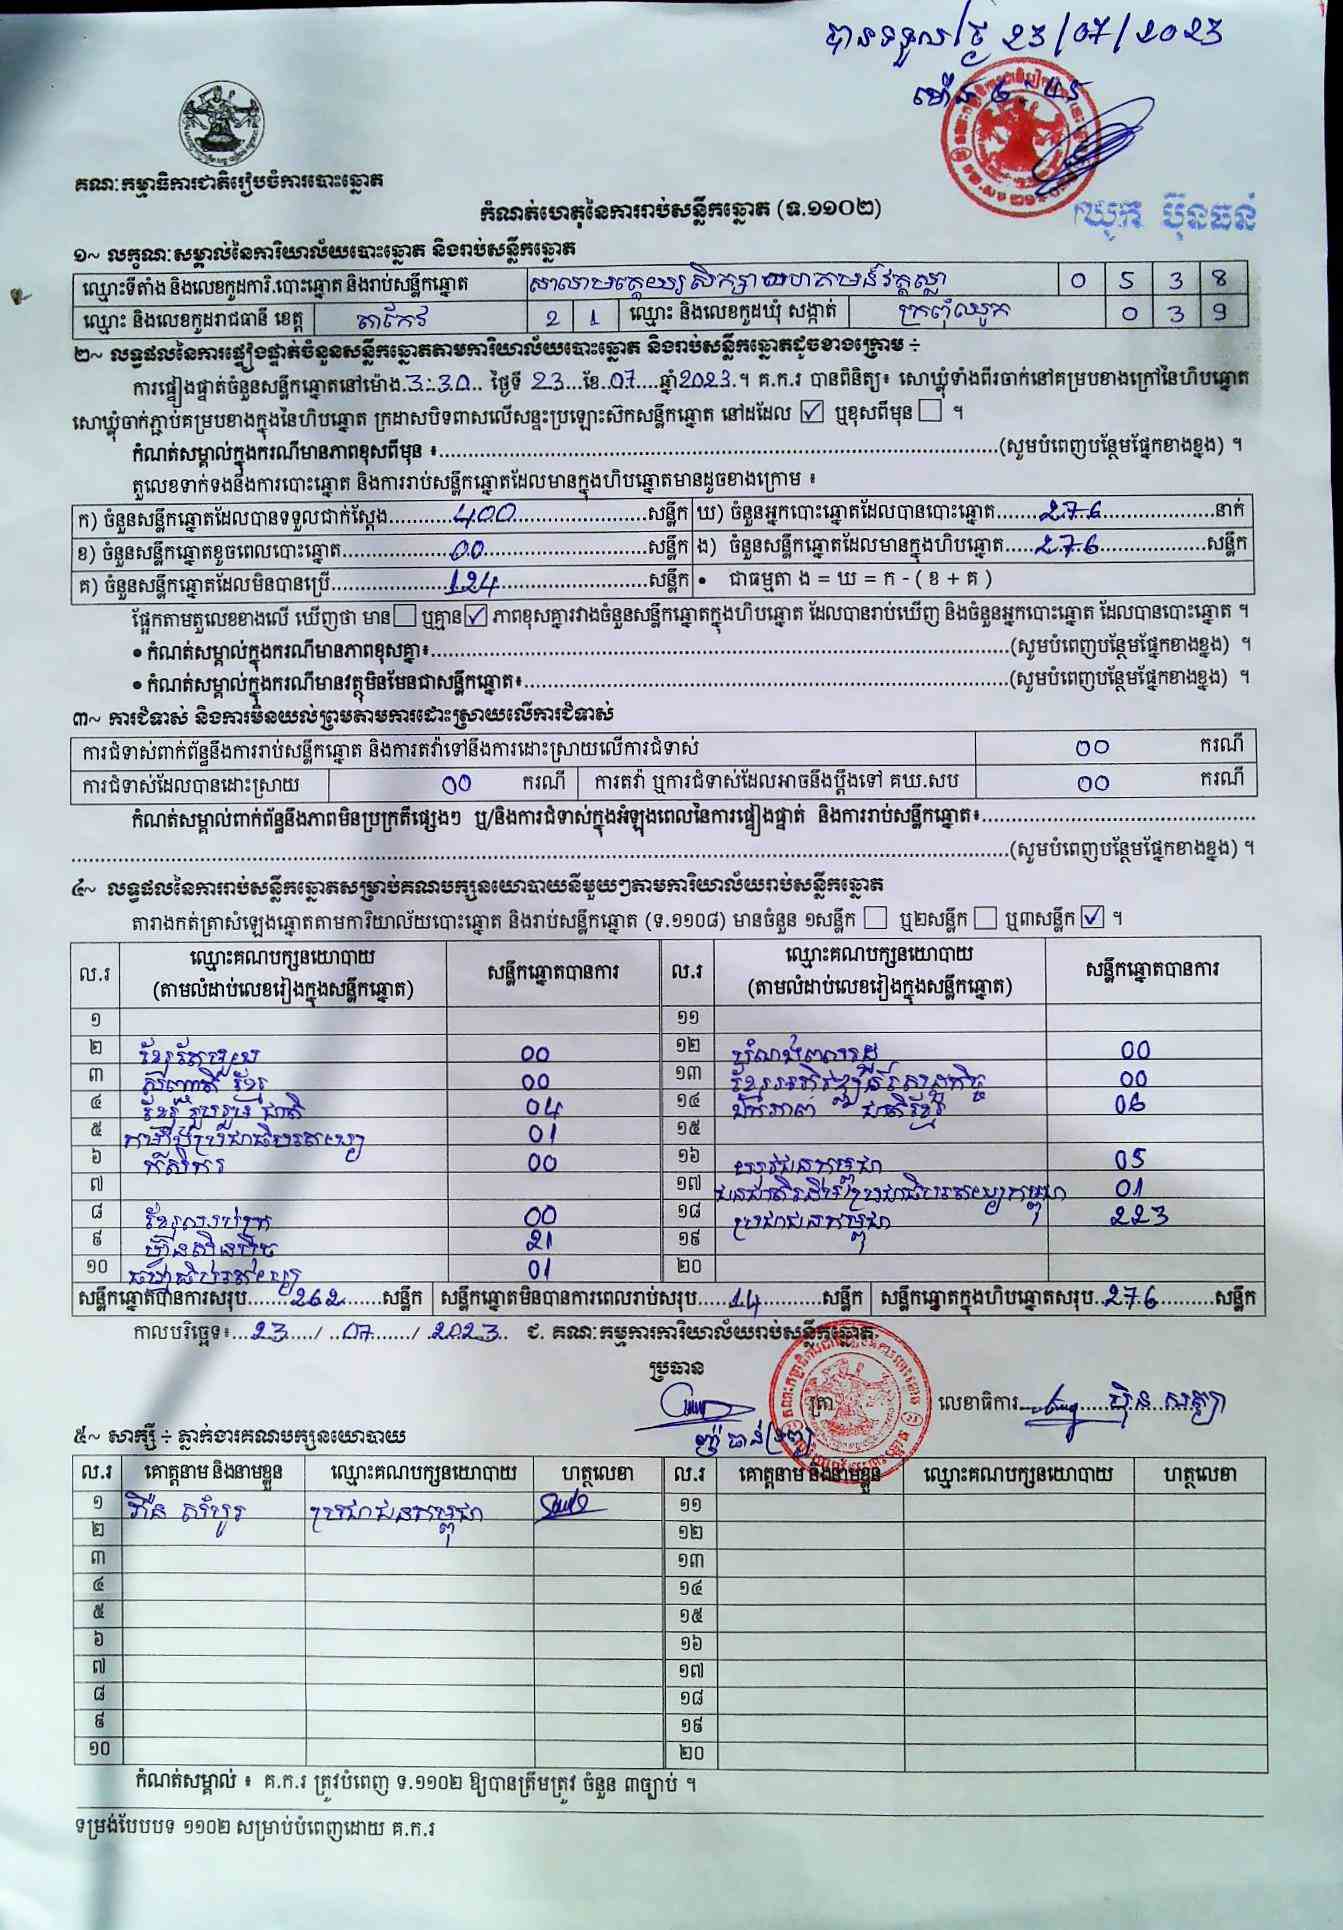 បានទទួលថ្ងៃ 23/07/2023
ម៉ោង
ឈូក ប៊ុនធន់
គណៈកម្មាធិការជាតិរៀបចំការបោះឆ្នោត
កំណត់ហេតុនៃការរាប់សន្លឹកឆ្នោត (ទ.១១០២)
១~ លក្ខណៈសម្គាល់នៃការិយាល័យបោះឆ្នោត និងរាប់សន្លឹកឆ្នោត
ឈ្មោះទីតាំង និងលេខកូដការិ.បោះឆ្នោត និងរាប់សន្លឹកឆ្នោត សាលាមត្តេយ្យសិក្សាសហគមន៍វត្តស្លា 0 5 3 8
ឈ្មោះ និងលេខកូដរាជធានី ខេត្ត តាកែវ 2 1 ឈ្មោះ និងលេខកូដឃុំ សង្កាត់ ក្រពុំឈូក 0 3 9
២~ លទ្ធផលនៃការផ្ទៀងផ្ទាត់ចំនួនសន្លឹកឆ្នោតតាមការិយាល័យបោះឆ្នោត និងរាប់សន្លឹកឆ្នោតដូចខាងក្រោម ÷
ការផ្ទៀងផ្ទាត់ចំនួនសន្លឹកឆ្នោតនៅម៉ោង.3:30.. ថ្ងៃទី 23...ខែ.07....ឆ្នាំ2023.។ គ.ក.រ បានពិនិត្យ៖ សោឃ្លុំទាំងពីរចាក់នៅគម្របខាងក្រៅនៃហិបឆ្នោត
សោឃ្លុំចាក់ភ្ជាប់គម្របខាងក្នុងនៃហិបឆ្នោត ក្រដាសបិទពាសលើសន្ទះប្រឡោះស៊កសន្លឹកឆ្នោត នៅដដែល ☑ ឬខុសពីមុន ☐ ។
កំណត់សម្គាល់ក្នុងករណីមានភាពខុសពីមុន ៖..........(សូមបំពេញបន្ថែមផ្នែកខាងខ្នង) ។
តួលេខទាក់ទងនឹងការបោះឆ្នោត និងការរាប់សន្លឹកឆ្នោតដែលមានក្នុងហិបឆ្នោតមានដូចខាងក្រោម ៖
ក) ចំនួនសន្លឹកឆ្នោតដែលបានទទួលជាក់ស្តែង..........400..........សន្លឹក ឃ) ចំនួនអ្នកបោះឆ្នោតដែលបានបោះឆ្នោត..........276..........នាក់
ខ) ចំនួនសន្លឹកឆ្នោតខូចពេលបោះឆ្នោត..........00..........សន្លឹក ង) ចំនួនសន្លឹកឆ្នោតដែលមានក្នុងហិបឆ្នោត..........276..........សន្លឹក
គ) ចំនួនសន្លឹកឆ្នោតដែលមិនបានប្រើ..........124..........សន្លឹក • ជាធម្មតា ង = ឃ = ក - ( ខ + គ )
ផ្អែកតាមតួលេខខាងលើ ឃើញថា មាន ☐ ឬគ្មាន ☑ ភាពខុសគ្នារវាងចំនួនសន្លឹកឆ្នោតក្នុងហិបឆ្នោត ដែលបានរាប់ឃើញ និងចំនួនអ្នកបោះឆ្នោត ដែលបានបោះឆ្នោត ។
• កំណត់សម្គាល់ក្នុងករណីមានភាពខុសគ្នា៖..........(សូមបំពេញបន្ថែមផ្នែកខាងខ្នង) ។
• កំណត់សម្គាល់ក្នុងករណីមានវត្ថុមិនមែនជាសន្លឹកឆ្នោត៖..........(សូមបំពេញបន្ថែមផ្នែកខាងខ្នង) ។
៣~ ការជំទាស់ និងការមិនយល់ព្រមតាមការដោះស្រាយលើការជំទាស់
ការជំទាស់ពាក់ព័ន្ធនឹងការរាប់សន្លឹកឆ្នោត និងការតវ៉ាទៅនឹងការដោះស្រាយលើការជំទាស់ 00 ករណី
ការជំទាស់ដែលបានដោះស្រាយ 00 ករណី ការតវ៉ា ឬការជំទាស់ដែលអាចនឹងប្តឹងទៅ គឃ.សប 00 ករណី
កំណត់សម្គាល់ពាក់ព័ន្ធនឹងភាពមិនប្រក្រតីផ្សេងៗ ឬ/និងការជំទាស់ក្នុងអំឡុងពេលនៃការផ្ទៀងផ្ទាត់ និងការរាប់សន្លឹកឆ្នោត៖..........
..........(សូមបំពេញបន្ថែមផ្នែកខាងខ្នង) ។
៤~ លទ្ធផលនៃការរាប់សន្លឹកឆ្នោតសម្រាប់គណបក្សនយោបាយនីមួយៗតាមការិយាល័យរាប់សន្លឹកឆ្នោត
តារាងកត់ត្រាសំឡេងឆ្នោតតាមការិយាល័យបោះឆ្នោត និងរាប់សន្លឹកឆ្នោត (ទ.១១០៨) មានចំនួន ១សន្លឹក ☐ ឬ២សន្លឹក ☐ ឬ៣សន្លឹក ☑ ។
ល.រ ឈ្មោះគណបក្សនយោបាយ (តាមលំដាប់លេខរៀងក្នុងសន្លឹកឆ្នោត) សន្លឹកឆ្នោតបានការ ល.រ ឈ្មោះគណបក្សនយោបាយ (តាមលំដាប់លេខរៀងក្នុងសន្លឹកឆ្នោត) សន្លឹកឆ្នោតបានការ
១ ១១
២ ខ្មែររីងមាំ 00 ១២ សំណង់ពលរដ្ឋ 00
៣ សញ្ជាតិខ្មែរ 00 ១៣ ខ្មែរអភិវឌ្ឍន៍សេដ្ឋកិច្ច 00
៤ ខ្មែរួបរួមជាតិ 04 ១៤ ឯកភាពជាតិខ្មែរ 06
៥ កម្លាំងប្រជាធិបតេយ្យ 01 ១៥
៦ កសិករ 00 ១៦ យុវជនកម្ពុជា 05
៧ ១៧ ជនជាតិដើមប្រជាធិបតេយ្យកម្ពុជា 01
៨ ខ្មែរឈប់ក្រ 00 ១៨ ប្រជាជនកម្ពុជា 223
៩ ហ៊្វុនស៊ិនប៉ិច 21 ១៩
១០ ធម្មាធិបតេយ្យ 01 ២០
សន្លឹកឆ្នោតបានការសរុប.......262.......សន្លឹក សន្លឹកឆ្នោតមិនបានការពេលរាប់សរុប.....14..........សន្លឹក សន្លឹកឆ្នោតក្នុងហិបឆ្នោតសរុប..276..........សន្លឹក
កាលបរិច្ឆេទ៖...23..../..07......./.2023.. ជ. គណៈកម្មការការិយាល័យរាប់សន្លឹកឆ្នោត
ប្រធាន
ត្រា លេខាធិការ.......... ប៉ិន សត្យា
៥~ សាក្សី ÷ ភ្នាក់ងារគណបក្សនយោបាយ
ល.រ គោត្តនាម និងនាមខ្លួន ឈ្មោះគណបក្សនយោបាយ ហត្ថលេខា ល.រ គោត្តនាម និងនាមខ្លួន ឈ្មោះគណបក្សនយោបាយ ហត្ថលេខា
១ វ៉ាន់ សំបូរ ប្រជាជនកម្ពុជា ១១
២ ១២
៣ ១៣
៤ ១៤
៥ ១៥
៦ ១៦
៧ ១៧
៨ ១៨
៩ ១៩
១០ ២០
កំណត់សម្គាល់ ៖ គ.ក.រ ត្រូវបំពេញ ទ.១១០២ ឱ្យបានត្រឹមត្រូវ ចំនួន ៣ច្បាប់ ។
ទម្រង់បែបបទ ១១០២ សម្រាប់បំពេញដោយ គ.ក.រ